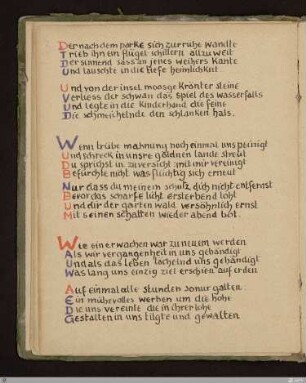 Der nach dem parke sich zur ruhe wandte
Trieb ihn ein flügel schillern allzuweit
Der sinnend sass an jenes weihers kante
Und lauschte in die tiefe heimlichkeit..
Und von der insel moosge Krönter steine
Verliess der schwan das spiel des wasserfalls
Und legte in die Kinderhand die feine
Die schmeichelnde den schlanken hals.
Wenn trübe mahnung noch einmal uns peinigt
Und schreck in unsre goldnen lande streut
Du sprichst in zuversicht mit mir vereinigt
Befürchte nicht was flüchtig sich erneut
Nur dass du meinem schutz dich nicht entfernst
Bevor das scharfe licht ersterbend loht
Und dir der garten wald versöhnlich ernst
Mit seinen schatten wieder abend bot.
Wie ein erwachen war zu neuem werden
Als wir vergangenheit in uns gebändigt
Und als das leben lächelnd uns gebändigt
Was lang uns einzig ziel erschien auf erden
Auf einmal alle stunden so nur galten
Ein mühevolles werben um die hohe
Die uns vereinte die in ihrer lohe
Gestalten in uns tilgte und gewalten